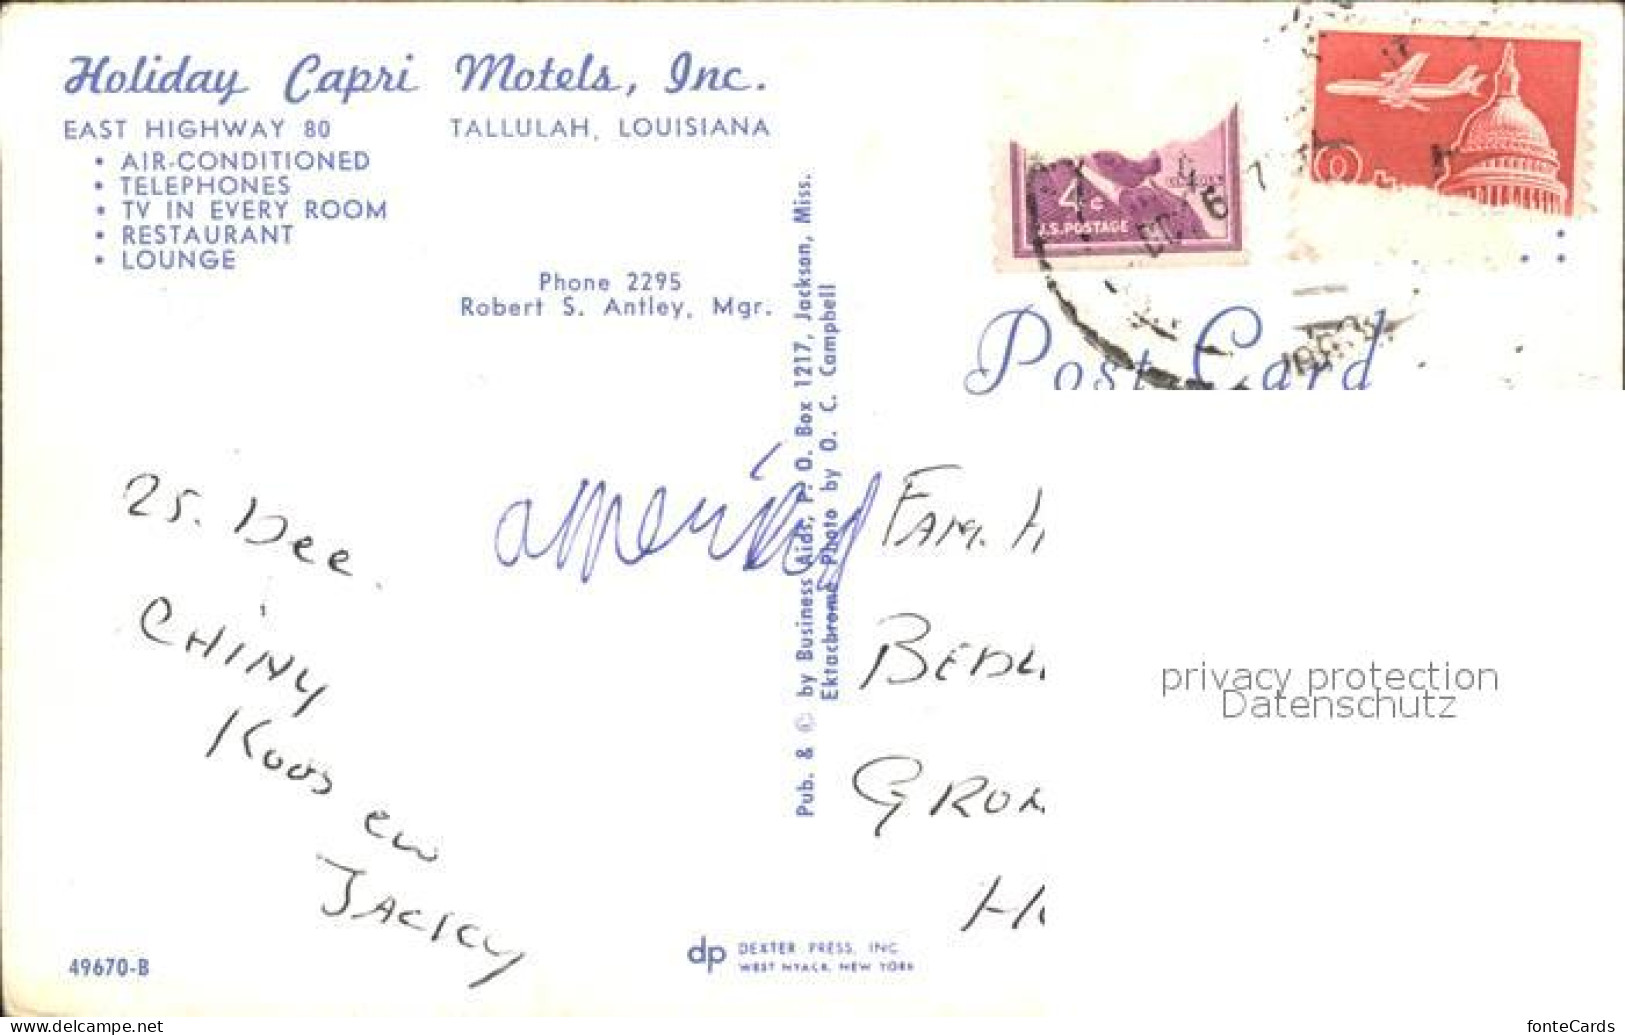 Holiday Capri Motels, Inc.
EAST HIGHWAY 80 TALLULAH, LOUISIANA
• AIR-CONDITIONED
• TELEPHONES
• TV IN EVERY ROOM
• RESTAURANT
• LOUNGE
Phone 2295
Robert S. Antley, Mgr.
Pub. & © by Business Aids, P. O. Box 1217, Jackson, Miss.
Ektachrome Photo by O. C. Campbell
4c
U.S. POSTAGE
Post Card
25. Dec.
CHINY
Koos en
JACKY
FAM. H
BEDU
GRON
H
privacy protection
Datenschutz
49670-B
dp DEXTER PRESS, INC
WEST NYACK, NEW YORK
www.delcampe.net
fonteCards